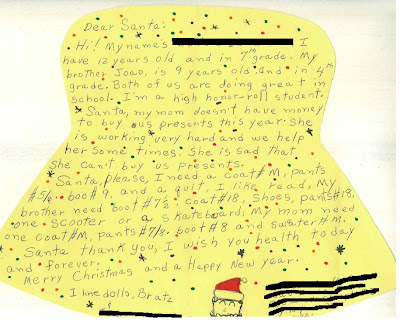 Dear Santa:
Hi! My names I
have 12 years old and in 7th grade. My
brother Joao, is 9 years old, and in 4th
grade. Both of us are doing great in
school. I'm a high honor-roll student.
Santa, my mom doesn't have money
to buy us presents this year. She
is working very hard and we help
her some times. She is sad that
she can't buy us presents.
Santa, please, I need a coat #M, pants
#5/6 boo# 9 and a quit, I like read, My
brother need boot #7½ coat #18, Shoes, pants #18,
one scooter or a skateboard; My mom need
one coat #M, pants #7/8 boot #8 and sweater #M.
Santa thank you, I wish you health to day
and forever.
Merry Christmas and a Happy New year.
I line dolls, Bratz